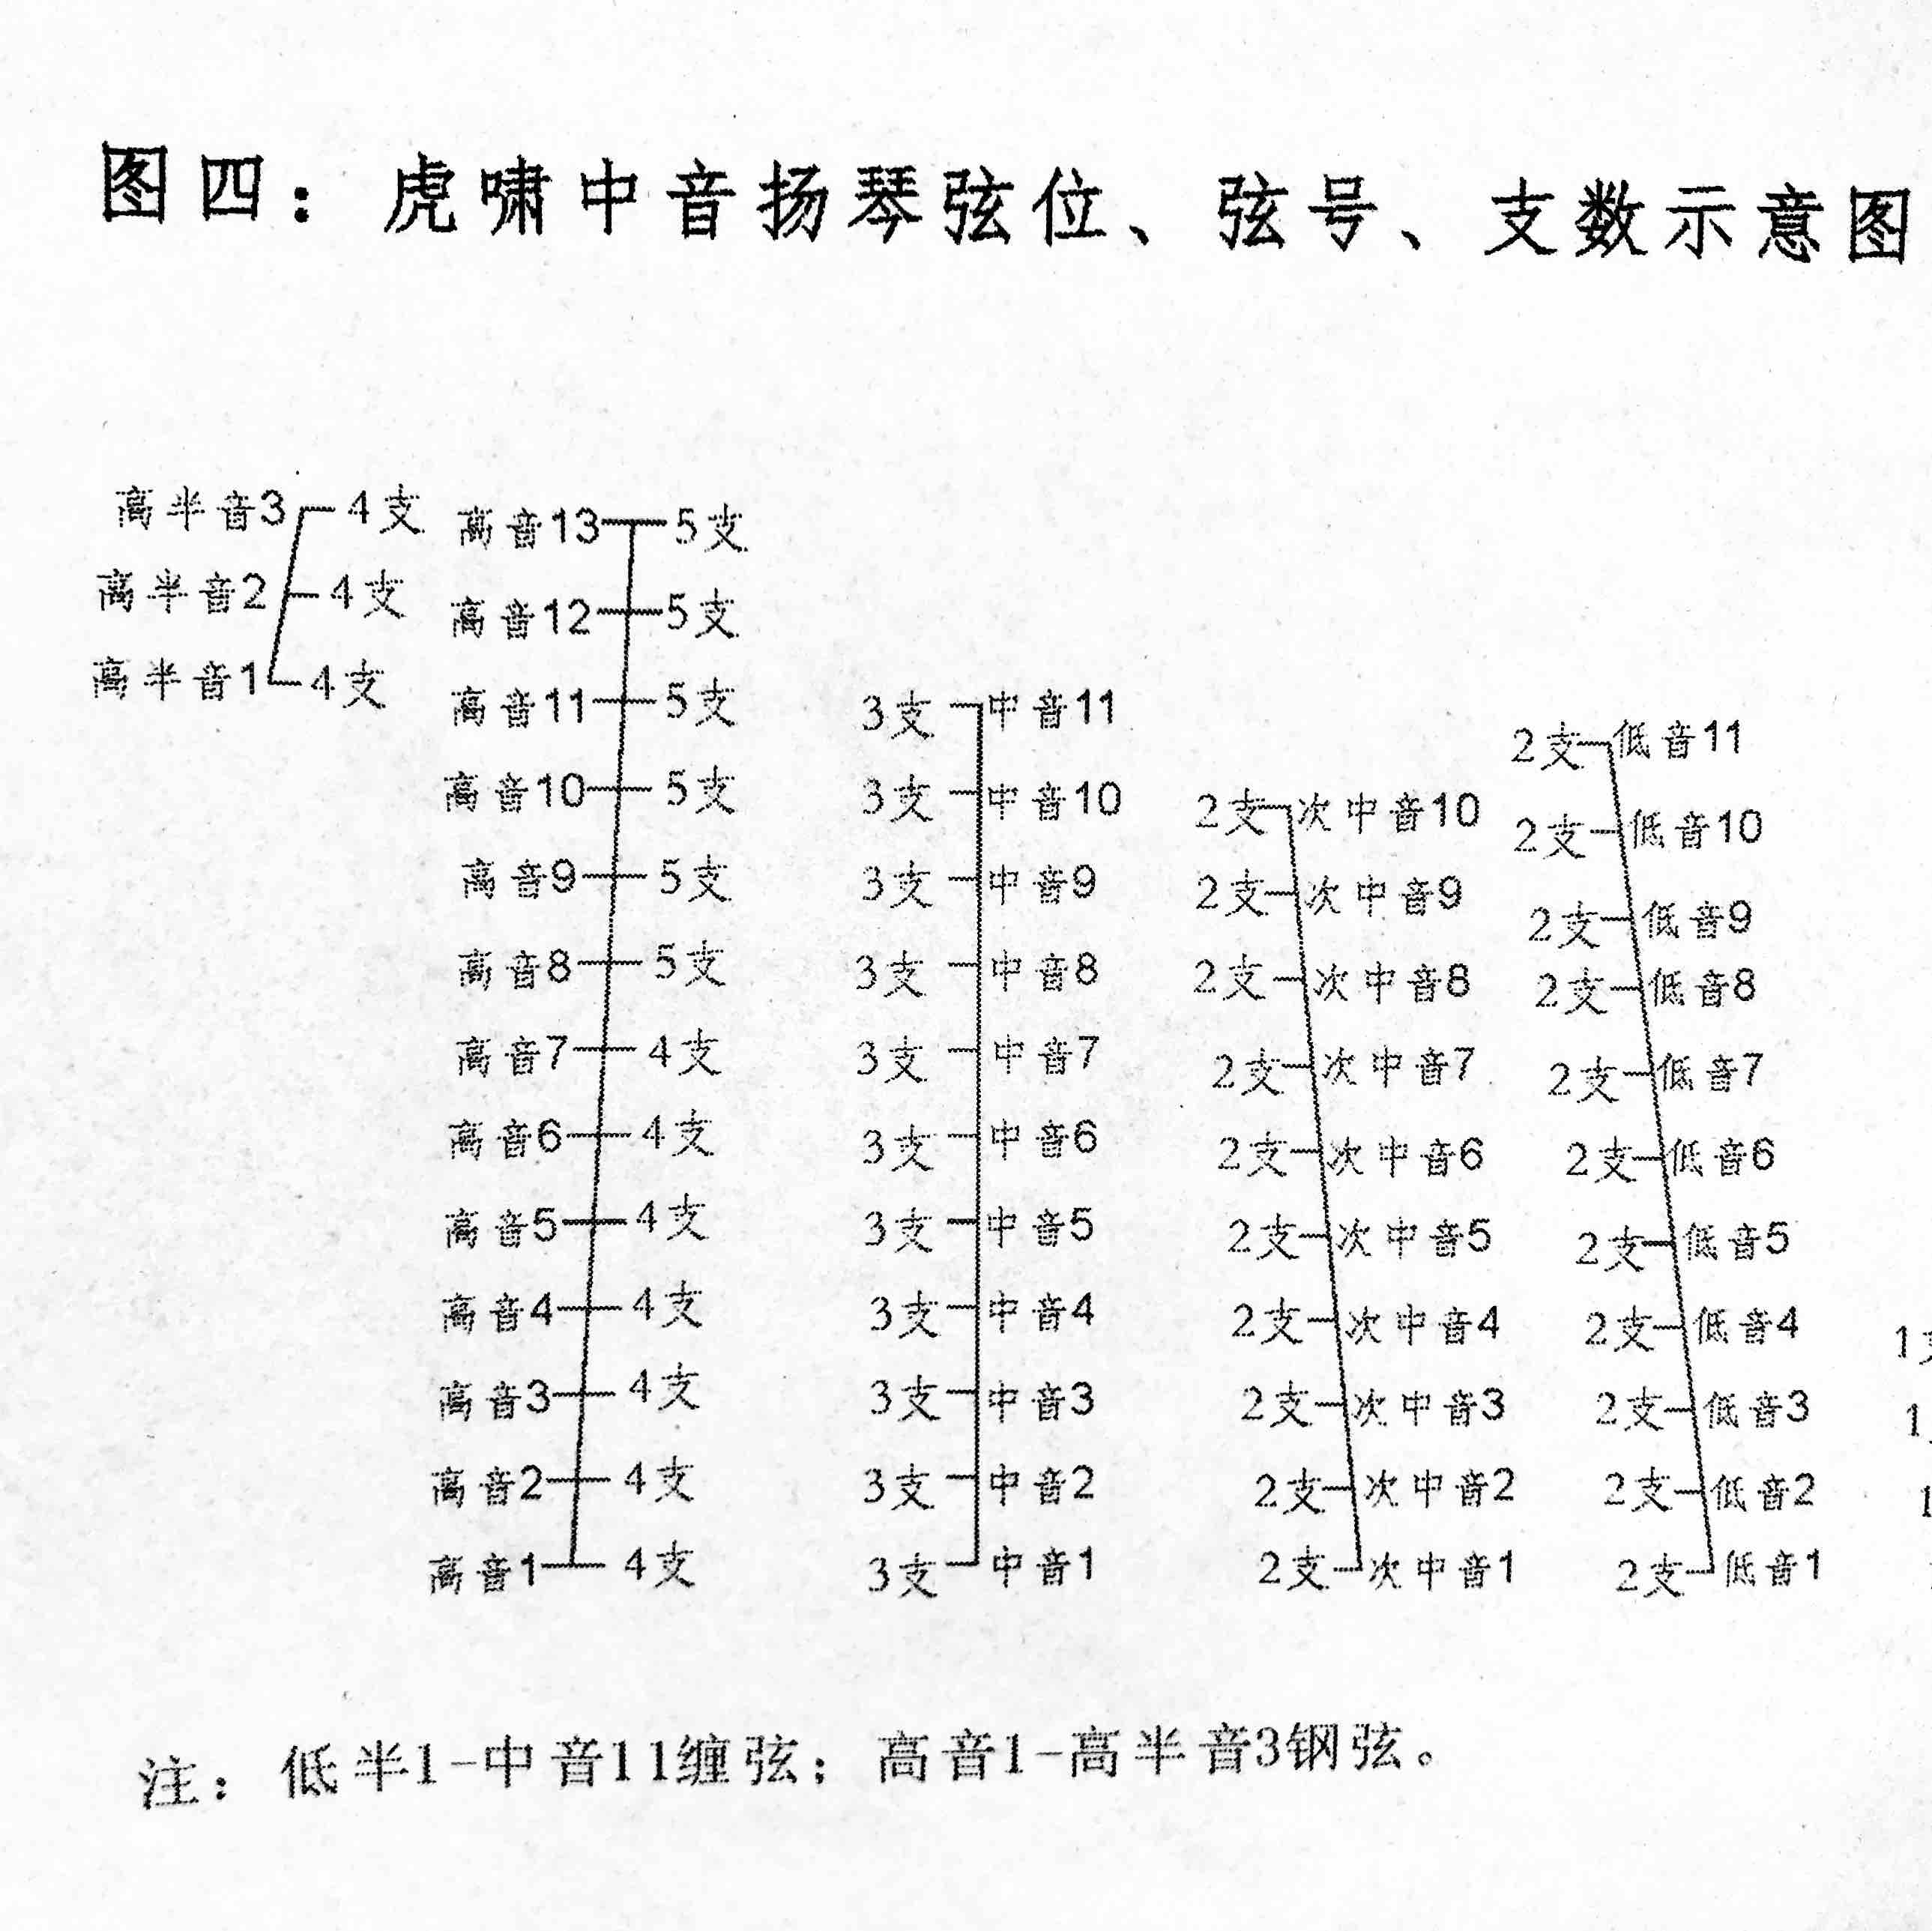 图四：虎啸中音扬琴弦位、弦号、支数示意图
高半音3 4支
高半音2 4支
高半音1 4支
高音13 5支
高音12 5支
高音11 5支
高音10 5支
高音9 5支
高音8 5支
高音7 4支
高音6 4支
高音5 4支
高音4 4支
高音3 4支
高音2 4支
高音1 4支
3支 中音11
3支 中音10
3支 中音9
3支 中音8
3支 中音7
3支 中音6
3支 中音5
3支 中音4
3支 中音3
3支 中音2
3支 中音1
2支 次中音10
2支 次中音9
2支 次中音8
2支 次中音7
2支 次中音6
2支 次中音5
2支 次中音4
2支 次中音3
2支 次中音2
2支 次中音1
2支 低音11
2支 低音10
2支 低音9
2支 低音8
2支 低音7
2支 低音6
2支 低音5
2支 低音4
2支 低音3
2支 低音2
2支 低音1
1
1
1
注：低半1-中音11缠弦；高音1-高半音3钢弦。